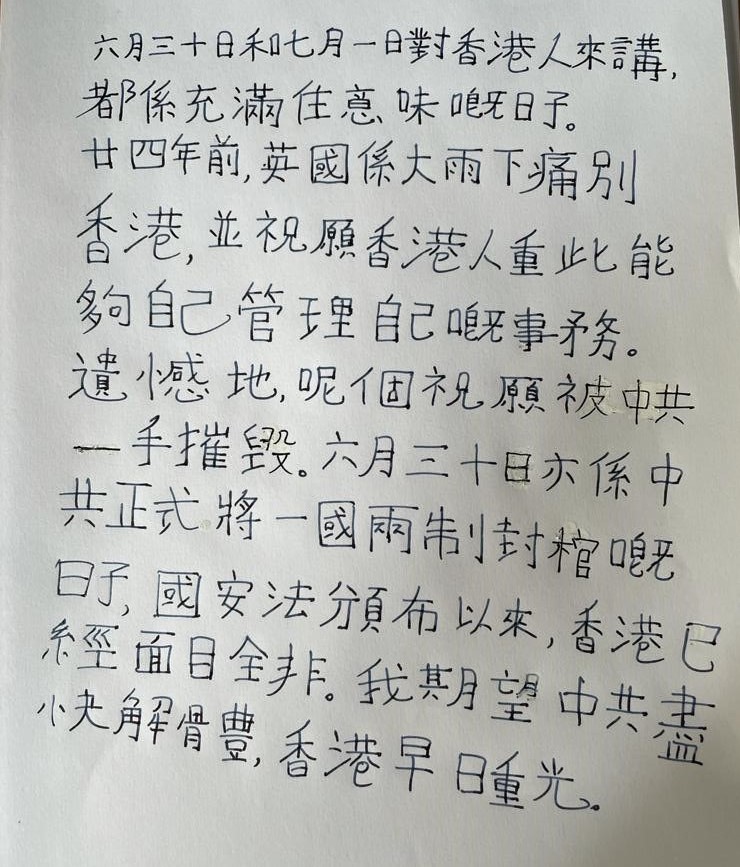 六月三十日和七月一日對香港人來講,
都係充滿住意味嘅日子。
廿四年前,英國係大雨下痛別
香港,並祝願香港人重此能
夠自己管理自己嘅事務。
遺憾地,呢個祝願被中共
一手摧毀。六月三十日亦係中
共正式將一國兩制封棺嘅
日子,國安法頒布以來,香港已
經面目全非。我期望中共盡
快解骨豊,香港早日重光。